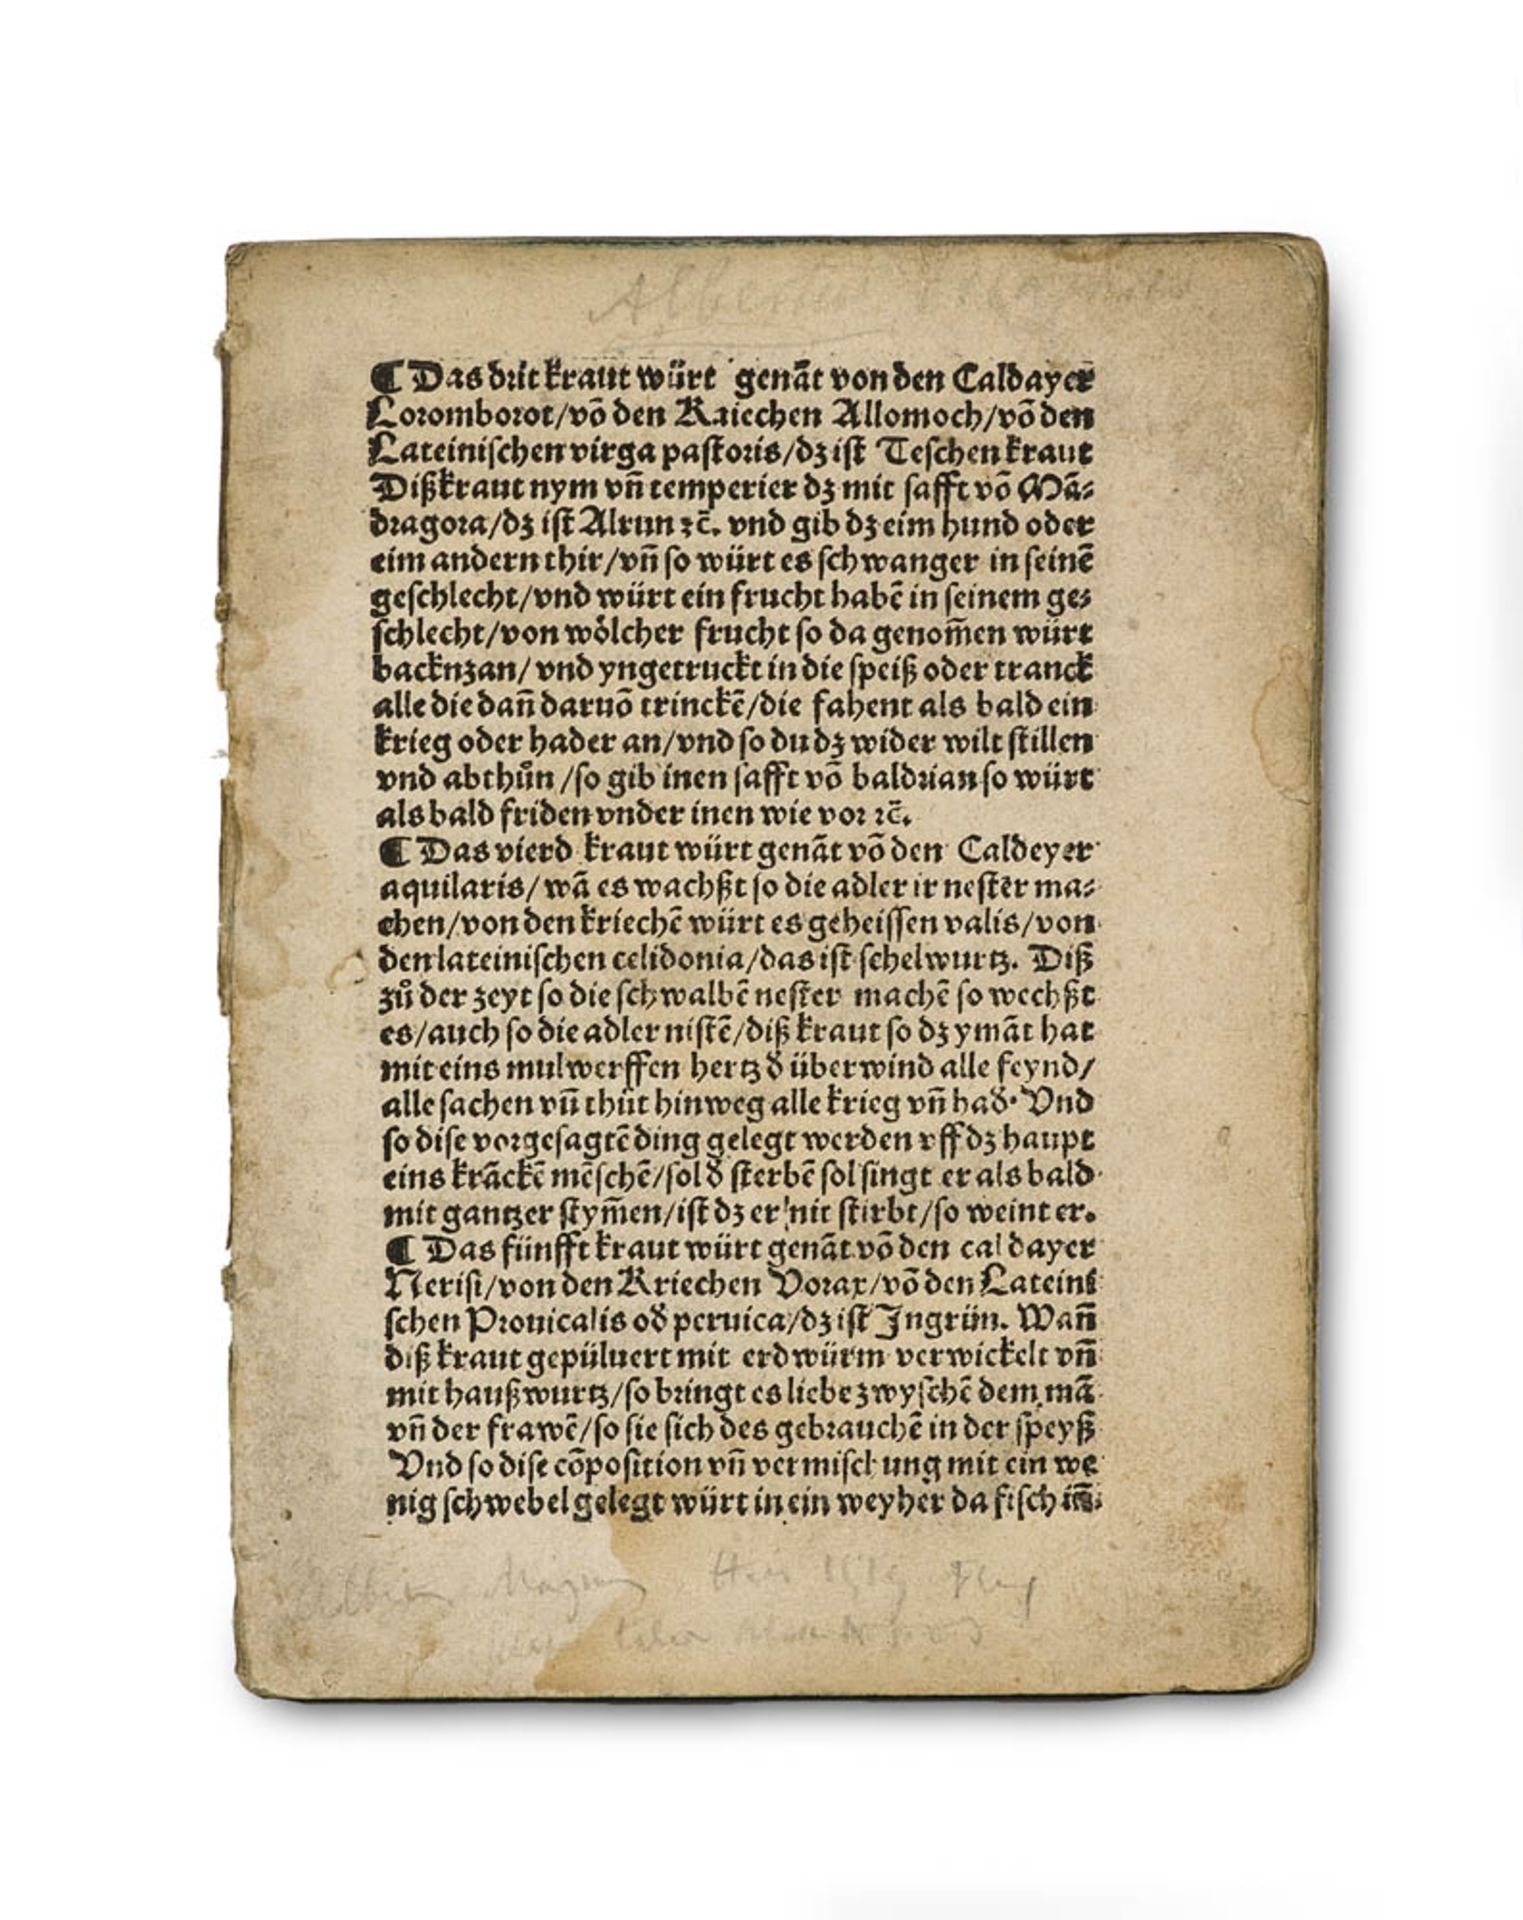 Albertus
¶ Das drit kraut würt genāt von den Caldayer
Loromborot/vō den Kriechen Allomoch/vō den
Lateinischen virga pastoris/dʒ ist Teschen kraut
Diß kraut nym vñ temperier dʒ mit safft vō Mā⸗
dragora/dʒ ist Alrun ⁊c̄. vnd gib dʒ eim hund oder
eim andern thir/vñ so würt es schwanger in seinē
geschlecht/vnd würt ein frucht habē in seinem ge⸗
schlecht/von wölcher frucht so da genom̄en würt
backnzan/ vnd yngetruckt in die speiß oder tranck
alle die dañ daruō trinckē/die fahent als bald ein
krieg oder hader an/vnd so du dʒ wider wilt stillen
vnd abthůn /so gib inen safft vō baldrian so würt
als bald friden vnder inen wie vor ⁊c̄.
¶ Das vierd kraut würt genāt vō den Caldeyer
aquilaris/ wā es wachßt so die adler ir nester ma⸗
chen/von den kriechē würt es geheissen valis/von
den lateinischen celidonia/das ist schelwurtz. Diß
zů der zeyt so die schwalbē nester machē so wechßt
es/auch so die adler nistē/diß kraut so dʒ ymāt hat
mit eins mulwerffen hertz d̕ überwind alle feynd/
alle sachen vñ thůt hinweg alle krieg vñ had̕. Vnd
so dise vorgesagtē ding gelegt werden vff dʒ haupt
eins krāckē mēschē/sol d̕ sterbē so singt er als bald
mit gantzer stym̄en/ist dʒ er nit stirbt/so weint er.
¶ Das fünfft kraut würt genāt vō den caldayer
Nerisi/von den Kriechen Vorax/vō den Lateini
schen Prouicalis od̕ peruica/dʒ ist Jngrün. Wañ
diß kraut gepüluert mit erdwürm verwickelt vñ
mit haußwurtz/so bringt es liebe zwyschē dem mā
vñ der frawē/so sie sich des gebrauchē in der speyß
Vnd so dise cōposition vñ vermischung mit ein we
nig schwebel gelegt würt in ein weyher da fisch in̄
Magnus